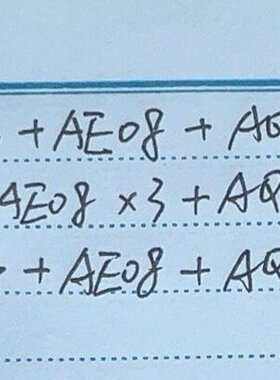 +AE08 + A
AE08 ×3 + AQ
+AE08 + AQ